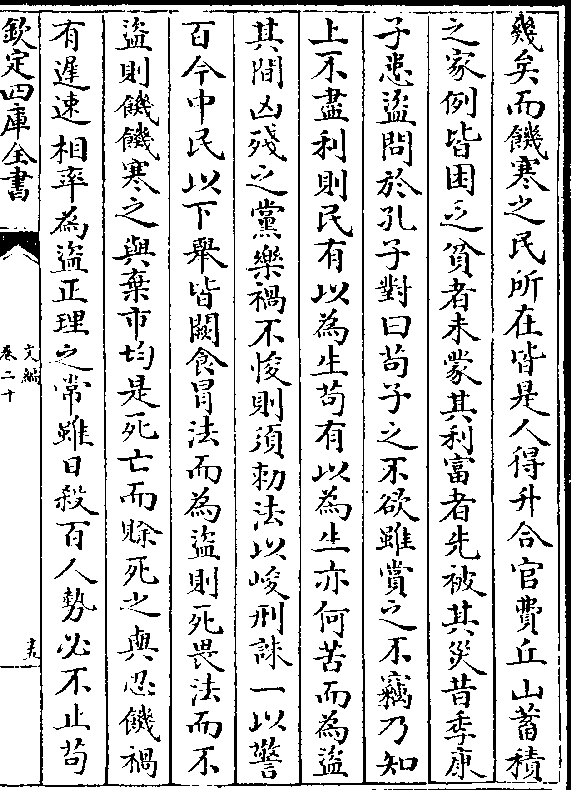 幾矣而饑寒之民所在皆是人得升合官費丘山蓄積
之家例皆困乏貧者未蒙其利富者先被其災昔季康
子患盜問於孔子對曰苟子之不欲雖賞之不竊乃知
上不盡利則民有以為生苟有以為生亦何苦而為盜
其間凶殘之黨樂禍不悛則須勑法以峻刑誅一以警
百今中民以下舉皆闕食冒法而為盜則死畏法而不
盜則饑饑寒之與棄市均是死亡而賒死之與忍饑禍
有遲速相率為盜正理之常雖日殺百人勢必不止苟
欽定四庫全書
文編
卷二十